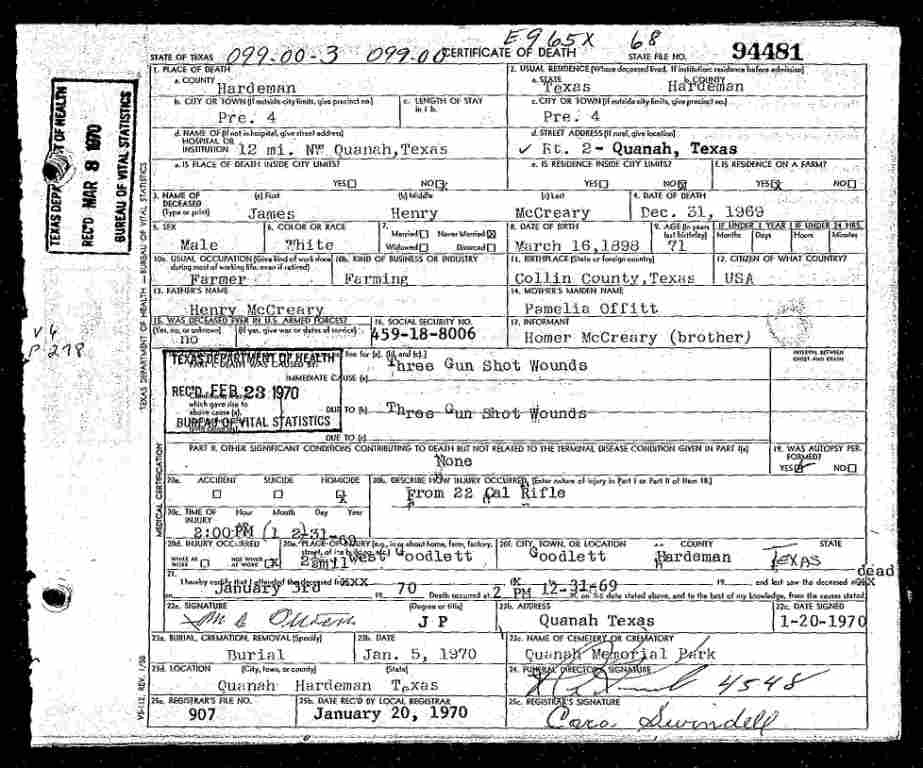 E965X 68
STATE OF TEXAS 099-00-3 099-00 CERTIFICATE OF DEATH STATE FILE NO. 94481
1. PLACE OF DEATH
a. COUNTY
Hardeman
2. USUAL RESIDENCE (Where deceased lived. If institution: residence before admission)
a. STATE
Texas
b. COUNTY
Hardeman
b. CITY OR TOWN (If outside city limits, give precinct no.)
Pre. 4
c. LENGTH OF STAY
in 1 b.
c. CITY OR TOWN (If outside city limits, give precinct no.)
Pre. 4
d. NAME OF (If not in hospital, give street address)
HOSPITAL OR
INSTITUTION 12 mi. NW Quanah, Texas
d. STREET ADDRESS (If rural, give location)
✓ Rt. 2- Quanah, Texas
e. IS PLACE OF DEATH INSIDE CITY LIMITS?
YES NO X
e. IS RESIDENCE INSIDE CITY LIMITS?
YES NO X
f. IS RESIDENCE ON A FARM?
YES X NO
3. NAME OF
DECEASED
(Type or print)
(a) First
James
(b) Middle
Henry
(c) Last
McCreary
4. DATE OF DEATH
Dec. 31, 1969
5. SEX
Male
6. COLOR OR RACE
White
7.
Married Never Married X
Widowed Divorced
8. DATE OF BIRTH
March 16, 1898
9. AGE (In years
last birthday)
71
IF UNDER 1 YEAR
Months Days
IF UNDER 24 HRS.
Hours Minutes
10a. USUAL OCCUPATION (Give kind of work done
during most of working life, even if retired)
Farmer
10b. KIND OF BUSINESS OR INDUSTRY
Farming
11. BIRTHPLACE (State or foreign country)
Collin County, Texas
12. CITIZEN OF WHAT COUNTRY?
USA
13. FATHER'S NAME
Henry McCreary
14. MOTHER'S MAIDEN NAME
Pamelia Offitt
15. WAS DECEASED EVER IN U.S. ARMED FORCES?
(Yes, no, or unknown) (If yes, give war or dates of service)
no
16. SOCIAL SECURITY NO.
459-18-8006
17. INFORMANT
Homer McCreary (brother)
PART I. DEATH WAS CAUSED BY:
IMMEDIATE CAUSE (a) Three Gun Shot Wounds
INTERVAL BETWEEN
ONSET AND DEATH
which gave rise to
above cause (a),
DUE TO (b) Three Gun Shot Wounds
DUE TO (c)
TEXAS DEPARTMENT OF HEALTH
REC'D FEB 23 1970
BUREAU OF VITAL STATISTICS
PART II. OTHER SIGNIFICANT CONDITIONS CONTRIBUTING TO DEATH BUT NOT RELATED TO THE TERMINAL DISEASE CONDITION GIVEN IN PART I(a)
None
19. WAS AUTOPSY PER-
FORMED?
YES NO
20a. ACCIDENT SUICIDE HOMICIDE
X
20b. DESCRIBE HOW INJURY OCCURRED. (Enter nature of injury in Part I or Part II of Item 18.)
From 22 Cal Rifle
20c. TIME OF
INJURY
Hour Month Day Year
2:00 PM 12-31-69
20d. INJURY OCCURRED
WHILE AT
WORK
NOT WHILE
AT WORK X
20e. PLACE OF INJURY (e.g., in or about home, farm, factory,
West Goodlett
20f. CITY, TOWN, OR LOCATION
Goodlett
COUNTY
Hardeman
STATE
TEXAS
21.
I hereby certify that I attended the deceased from
January 3rd 19 70
19 and last saw the deceased
dead
Death occurred at 2 PM 12-31-69 M. on the date stated above, and to the best of my knowledge, from the causes stated
22a. SIGNATURE
(Degree or title)
J P
22b. ADDRESS
Quanah Texas
22c. DATE SIGNED
1-20-1970
23a. BURIAL, CREMATION, REMOVAL (Specify)
Burial
23b. DATE
Jan. 5, 1970
23c. NAME OF CEMETERY OR CREMATORY
Quanah Memorial Park
23d. LOCATION (City, town, or county) (State)
Quanah Hardeman Texas
24. FUNERAL DIRECTOR'S SIGNATURE
4548
25a. REGISTRAR'S FILE NO.
907
25b. DATE REC'D BY LOCAL REGISTRAR
January 20, 1970
25c. REGISTRAR'S SIGNATURE
Cara Swindell
TEXAS DEPARTMENT OF HEALTH — BUREAU OF VITAL STATISTICS
MEDICAL CERTIFICATION
VS-112, REV. 1/58
TEXAS DEPT OF HEALTH
REC'D MAR 8 1970
BUREAU OF VITAL STATISTICS
V 4
P 278